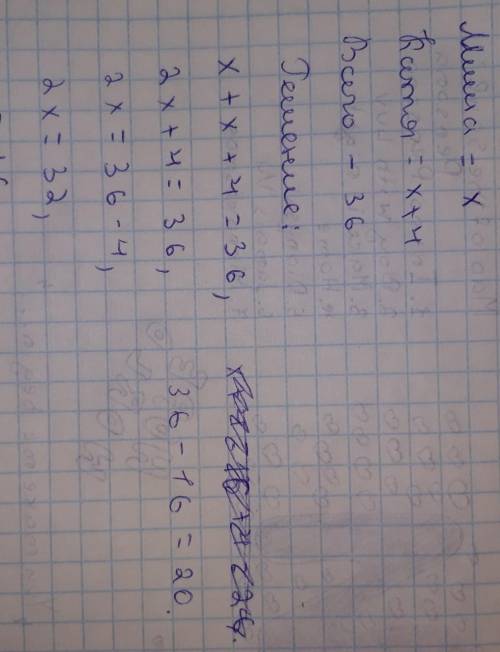 Миша = x
Катя = x+4
Всего - 36
Решение:
x + x + 4 = 36,
2x + 4 = 36,
36 - 16 = 20.
2x = 36 - 4,
2x = 32,